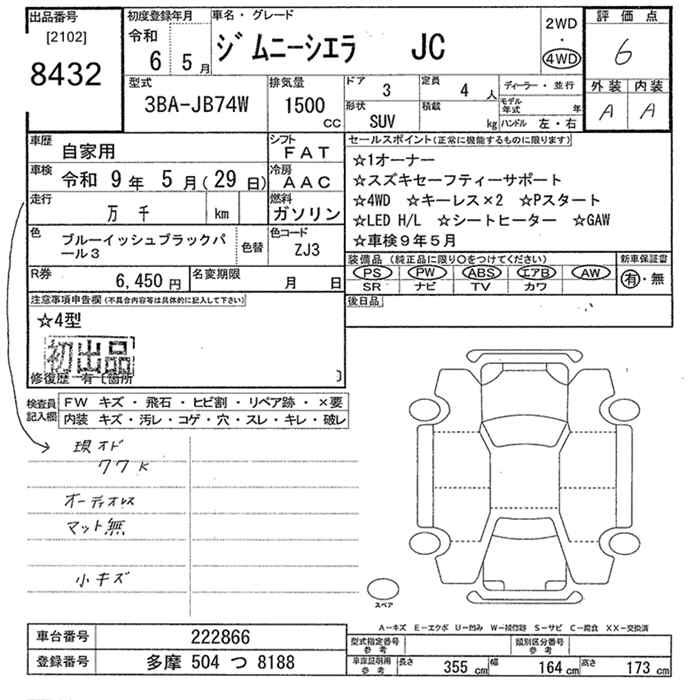 出品番号
[2102]
8432
初度登録年月
令和
6 5月
車名・グレード
ジムニーシエラ JC
2WD
・
4WD
評価点
6
外装 内装
A A
型式
3BA-JB74W
排気量
1500
CC
ドア
3
定員
4 人
ディーラー・並行
形状
SUV
積載
kg
モデル年式 年
ハンドル 左・右
車歴
自家用
シフト
FAT
車検
令和 9年 5月(29日)
冷房
AAC
走行
万 千 km
燃料
ガソリン
色
ブルーイッシュブラックパ
ール3
色替
色コード
ZJ3
R券
6,450円
名変期限
月 日
セールスポイント(正常に機能するものに限ります)
☆1オーナー
☆スズキセーフティーサポート
☆4WD ☆キーレス×2 ☆Pスタート
☆LED H/L ☆シートヒーター ☆GAW
☆車検9年5月
装備品 (純正品に限り○をつけてください)
PS PW ABS エアB AW
SR ナビ TV カワ
新車保証書
有・無
後日品
注意事項申告欄(不具合内容等は具体的に記入して下さい)
☆4型
初出品
修復歴 有〔箇所 〕
検査員
記入欄
FW キズ・飛石・ヒビ割・リペア跡・×要
内装 キズ・汚レ・コゲ・穴・スレ・キレ・破レ
現オド
77K
オーディオレス
マット無
小キズ
スペア
A−キズ E−エクボ U−凹み W−補修跡 S−サビ C−腐食 XX−交換済
車台番号 222866
登録番号 多摩 504 つ 8188
型式指定番号
参考
類別区分番号
参考
車庫証明用
参考
長さ 355 cm 幅 164 cm 高さ 173 cm